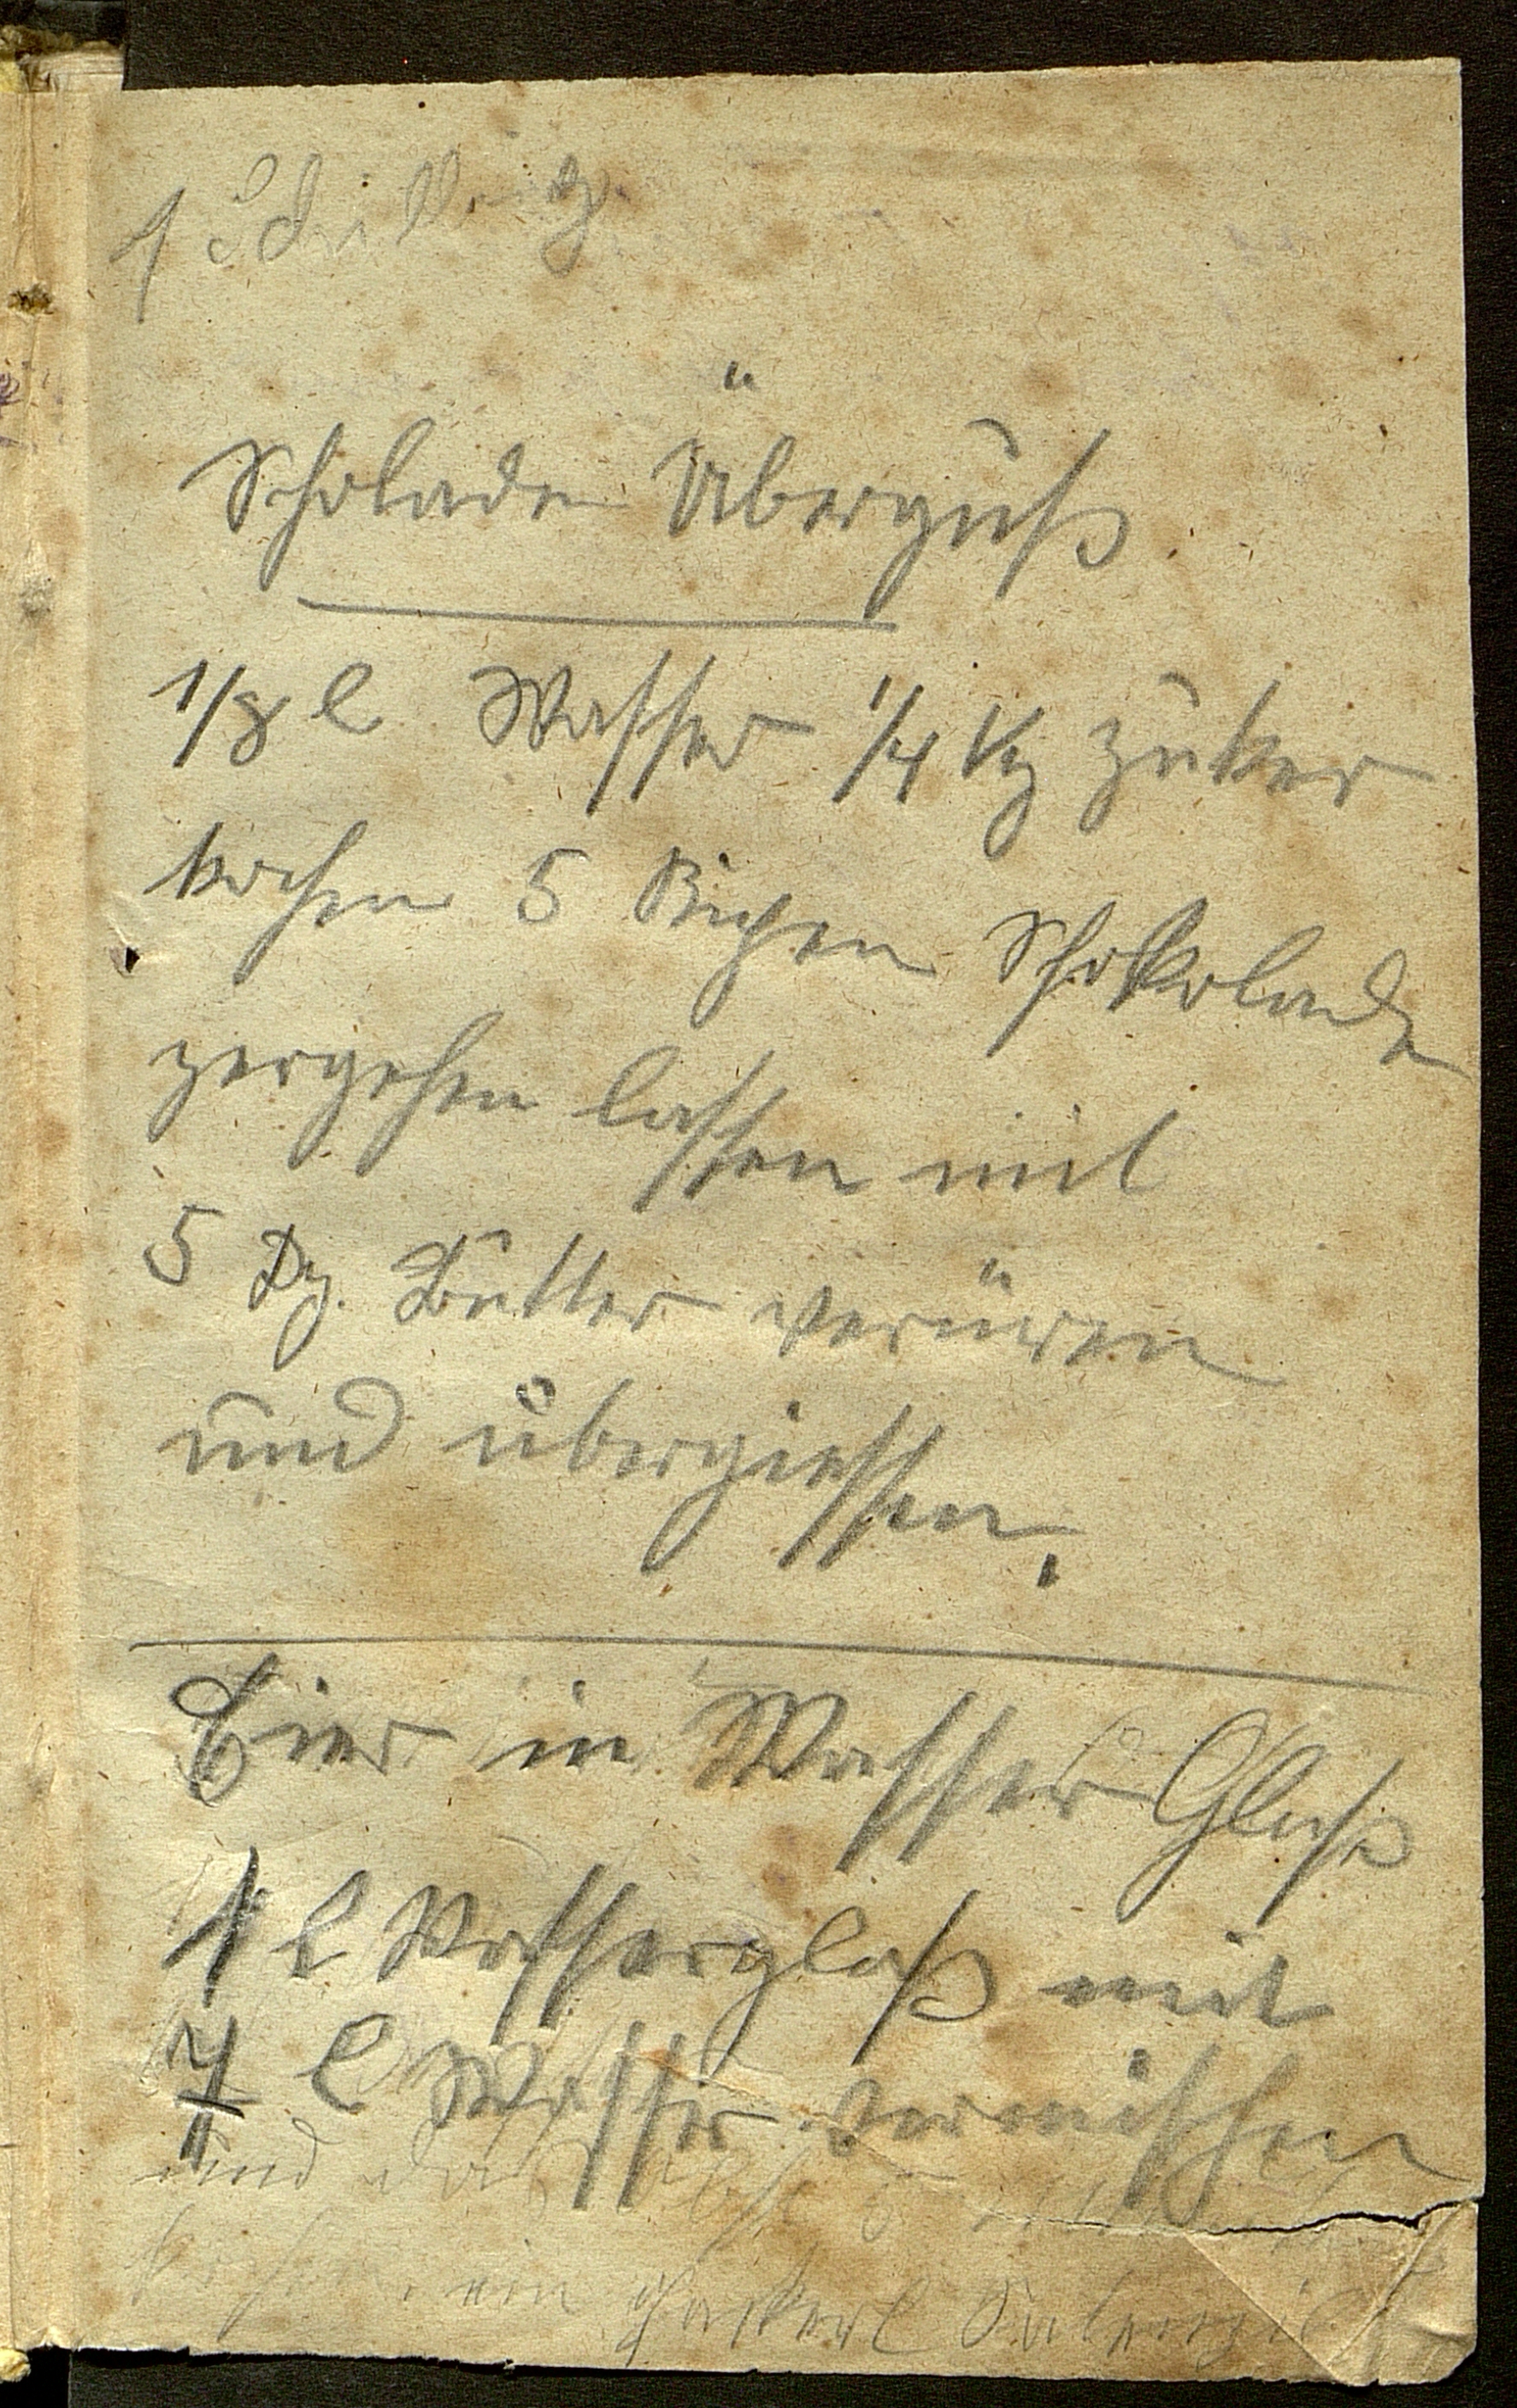 1 Schilling
Scholade Überguß
1/8 l Wasser 1/4 Kg Zuker
kochen 5 Rigen Schokolade
zergehen lassen mit
5 Dg. Butter verüren
und übergiessen.
Eier in Wasser Glaß
1 l Wasserglaß mit
7 l Wasser vermischen
und
ein